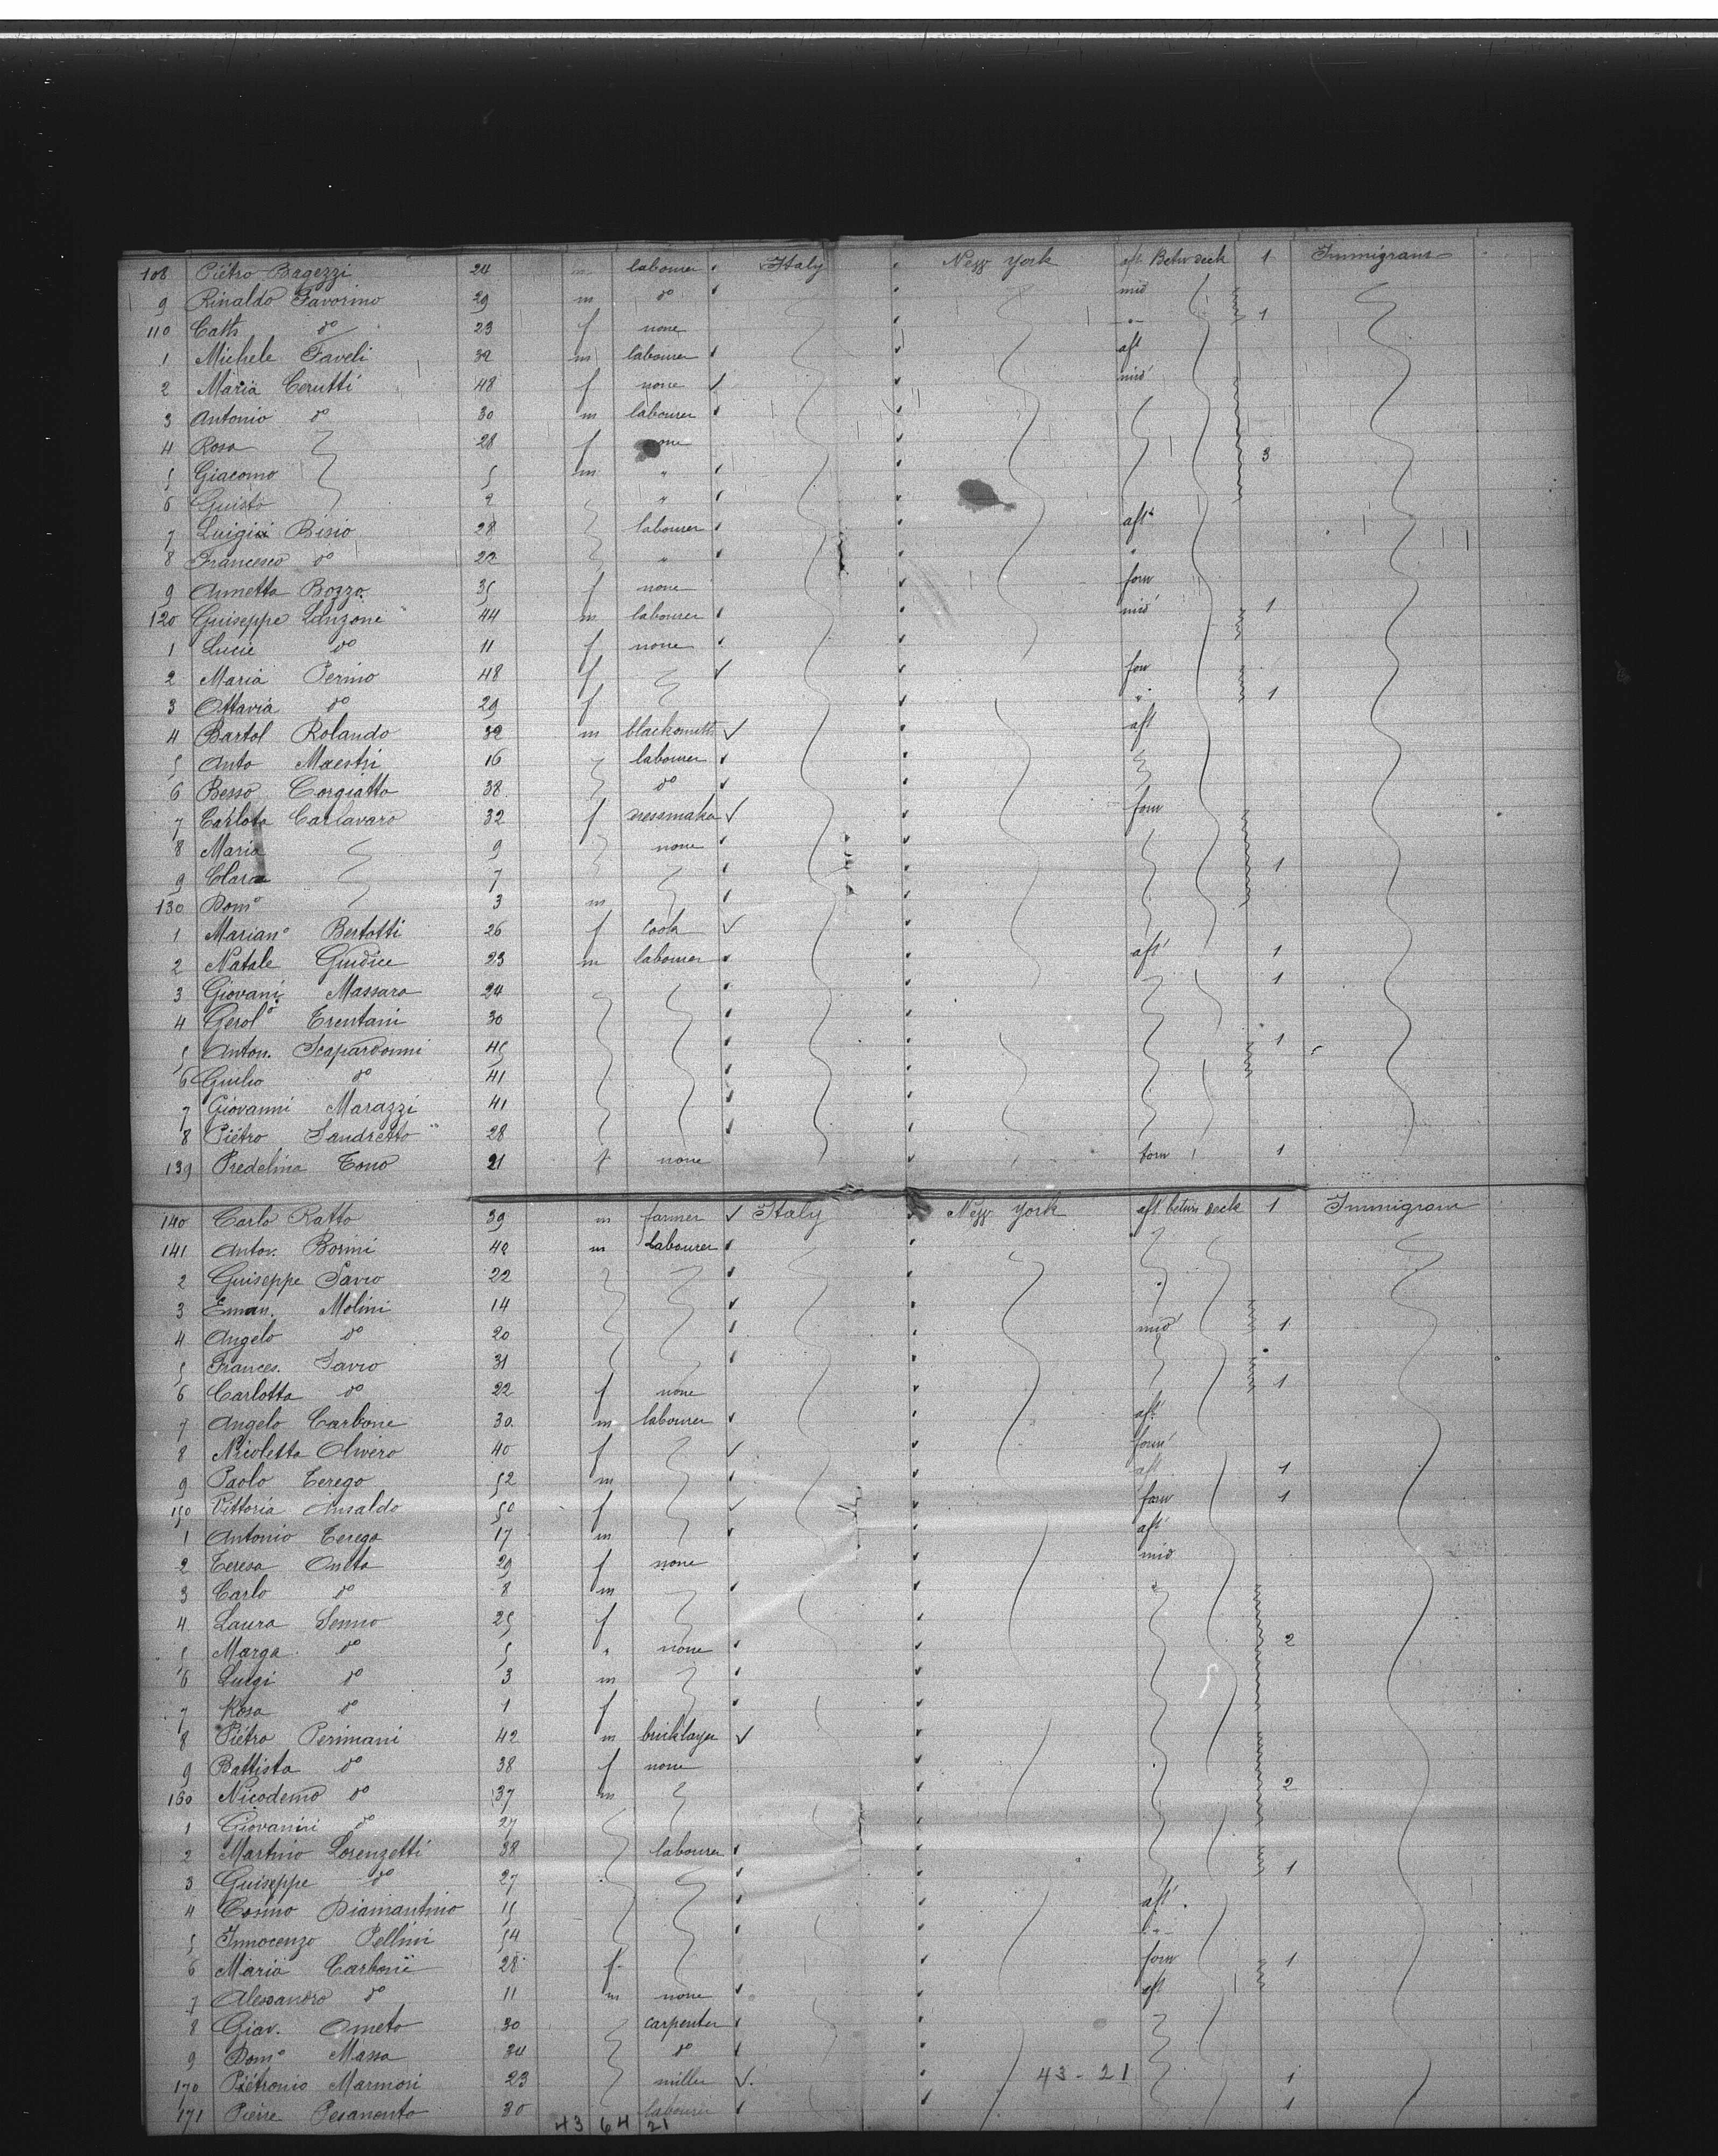 108 Piétro Bagezzi 24 m labourer Italy New York aft Betw deck 1 Immigrans
9 Rinaldo Favorino 29 m do mid
110 Cath do 23 f none 1
1 Michele Faveli 32 m labourer aft
2 Maria Cerutti 48 f none mid
3 Antonio do 30 m labourer
4 Rosa 28 f none 3
5 Giacomo 5 m "
6 Guisto 2 "
7 Luigi Bisio 28 labourer aft
8 Francesco do 22 "
9 Annetta Bozzo 35 f none forw
120 Guiseppe Lanzone 44 m labourer mid 1
1 Lucie do 11 f none
2 Maria Perino 48 f forw
3 Ottavia do 29 f " 1
4 Bartol Rolando 32 m blacksmith aft
5 Anto Maestri 16 labourer
6 Besso Corgiatto 38 do
7 Carlota Carlavaro 32 f dressmaker forw
8 Maria 9 none
9 Clara 7 1
130 Domo 3 m
1 Mariano Bertotti 26 f cook
2 Natale Giudice 23 m labourer aft 1
3 Giovani Massara 24 1
4 Gerolo Trentani 30
5 Anton. Scapardonni 45 1
6 Guilio do 41
7 Giovanni Marazzi 41
8 Piétro Sandretto 28
139 Predelina Tono 21 f none forw 1
140 Carlo Ratto 39 m farmer Italy New York aft betw deck 1 Immigrans
141 Anton. Borini 42 m labourer
2 Guiseppe Savio 22
3 Eman. Molini 14
4 Angelo do 20 mid 1
5 Frances. Savio 31
6 Carlotta do 22 f none 1
7 Angelo Carbone 30 m labourer aft
8 Nicoletta Olivero 40 f forw
9 Paolo Terego 52 m aft 1
150 Vittoria Ansaldo 50 f forw 1
1 Antonio Terego 17 m aft
2 Teresa Oneto 29 f none mid
3 Carlo do 8 m "
4 Laura Senno 25 f
5 Marga. do 5 " none 2
6 Luigi do 3 m
7 Rosa do 1 f
8 Piétro Perimani 42 m bricklayer
9 Battista do 38 f none
160 Nicodemo do 37 m 2
1 Giovanini do 27
2 Martino Lorenzetti 38 labourer
3 Guiseppe do 27 1
4 Cosimo Diamantino 15 aft
5 Innocenzo Pellini 54
6 Maria Carbone 28 f forw 1
7 Alessandro do 11 m none aft
8 Giov. Ometo 30 carpenter
9 Domo Massa 34 do
170 Piétronio Marmori 23 miller 43 - 21 1
171 Pierre Pesanento 30 labourer 1
43 64 21